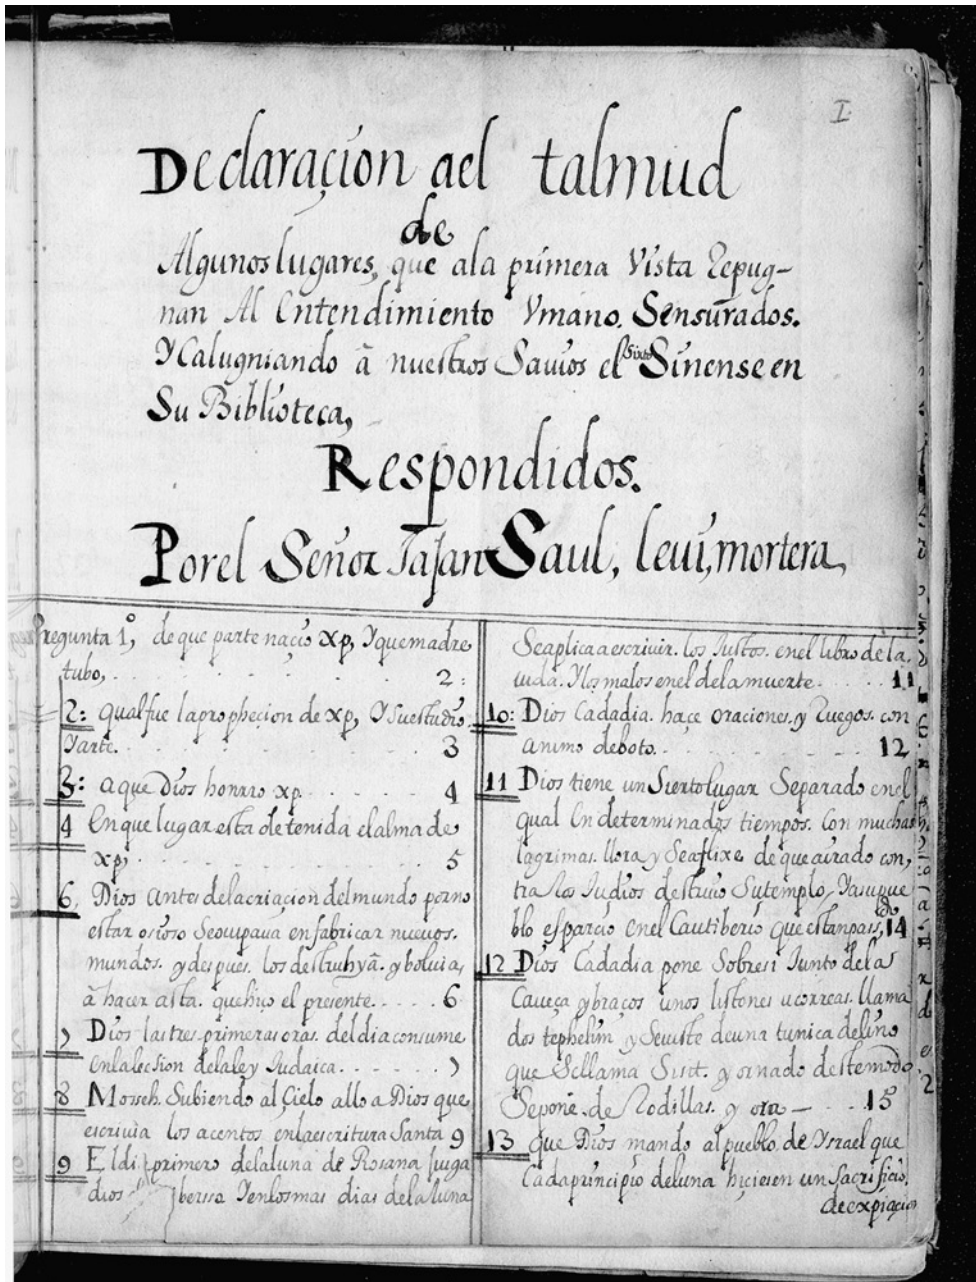 I
Declaraçion del talmud
de
Algunos lugares, que ala primera Vista Repug-
nan Al Entendimiento Ymano. Sensurados.
Y Calugniando â nuestros Savios el Sixto Sinense en
Su Biblioteca,
Respondidos.
Por el Señor Jajan Saul, levi, mortera,
Pregunta 1º, de que parte nacio Xp, Y que madre
tubo, . . . . . 2:
2: qual fue la prophecion de xp, Y Su estudio.
Y arte. . . . . 3
3: a que Dios honrro xp . . . . . 4
4 En que lugar esta detenida el alma de
xp, . . . . . 5
6, Dios antes de la criaçion del mundo por no
estar osioso Se ocupava en fabricar nuevos.
mundos. y despues. los destruhyã. y bolvia,
â hacer asta. que hiço el presente. . . . . 6
7 Dios las tres. primeras oras. del dia consume
en la lecsion de la ley Judaica. . . . . 7
8 Mosseh. Subiendo al Cielo allo a Dios que
escrivia los acentos en la escritura Santa 9
9 El di primero de la luna de Rosana juiga
dios Y en los mas dias de la luna
Se aplica a escrivir. los Justos. en el libro de la,
vida. Y los malos en el de la muerte . . . . . 11
10: Dios Cada dia. hace oraciones. y Ruegos. con
animo deboto. . . . . 12
11 Dios tiene un Sierto lugar Separado en el
qual En determinados tiempos. Con muchas
lagrimas. llora y Se aflixe de que airado con,
tra los Judios destruio Su templo, Y a su pue
blo esparcio en el Cautiberio que estan passdo, 14
12 Dios Cada dia pone Sobre si Junto de la
Caveça y braços unos listones u correas. llama
dos tephelim y Se viste de una tunica de lino
que Se llama Sisit. y ornado deste modo
Se pone. de Rodillas. y ora — . . . . 15
13 que Dios mando al pueblo de Ysrael que
Cada principio de luna hiciesen un Sacrificio.
de expiaçion